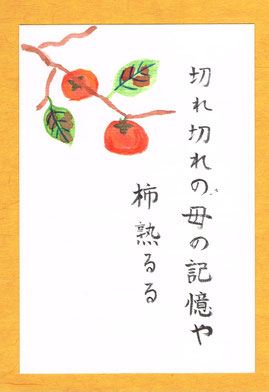 切れ切れの母の記憶や
柿熟るる